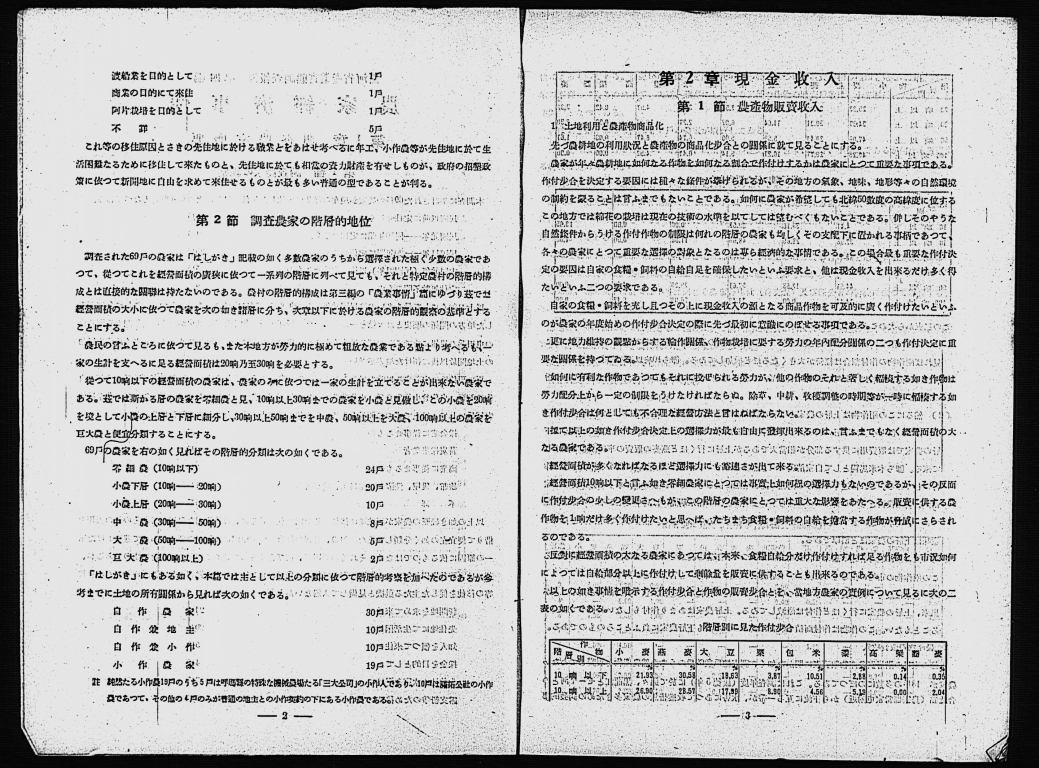 渡船業を目的として 1戸
商業の目的にて来住 1戸
阿片栽培を目的として 1戸
不詳 5戸
これ等の移住原因とさきの先住地に於ける職業とをあはせ考へるに年工、小作農等が先住地に於て生
活困難なるために移住して来たものと、先住地にても相当の資力財産を有せしものが、政府の招墾政
策に依つて新開地に自由を求めて来住せるものとが最も多い普通の型であることが判る。
第2節 調査農家の階層的地位
調査された69戸の農家は「はしがき」記載の如く多数農家のうちから選択された極く少数の農家であ
つて、従つてこれを経営面積の広狭に依つて一系列の階層に列べて見ても、それと特定農村の階層的構
成とは直接的な関聯は持たないのである。農村の階層的構成は第三編の「農業事情」篇にゆづり茲では
経営面積の大小に依つて農家を次の如き諸層に分ち、次章以下に於ける農家の階層的観察の基準とする
ことにする。
農民の言ふところに依つて見るも、また本地方が労力的に極めて粗放な農業である点より考へるも、一
家の生計を支へるに足る経営面積は20晌乃至30晌を必要とする。
従つて10晌以下の経営面積の農家は、農家のみに依つては一家の生計を立てることが出来ない農家で
ある。茲では斯かる層の農家を零細農と見、10晌以上30晌までの農家を小農と見做し、この小農を20晌
を境として小農の上層と下層に細分し、30晌以上50晌までを中農、50晌以上を大農、100晌以上の農家を
巨大農と便宜分類することにする。
69戸の農家を右の如く見ればその階層的分類は次の如くである。
零細農(10晌以下) 24戸
小農下層(20晌——20晌) 20戸
小農上層(20晌——30晌) 10戸
中農(30晌——50晌) 8戸
大農(50晌——100晌) 5戸
巨大農(100晌以上) 2戸
「はしがき」にもある如く、本篇では主として以上の分類に依つて階層的考察を加へたのであるが参
考までに土地の所有関係から見れば次の如くである。
自作農家 30戸
自作兼地主 10戸
自作兼小作 10戸
小作農家 19戸
註 純然たる小作農19戸のうち5戸は呼瑪県の特殊な機械農場たる「三大公司」の小作人であり、10戸は満拓公社の小作
農であつて、その他の4戸のみが普通の地主との小作契約の下にある小作農である。
— 2 —
第2章 現金収入
第1節 農産物販売収入
1. 土地利用と農産物商品化
先づ農耕地の利用状況と農産物の商品化歩合との関係に就て見ることにする。
農家が年々農耕地に如何なる作物を如何なる割合で作付けするかは農家にとつて重要な事項である。
作付歩合を決定する要因には種々な条件が挙げられるが、その地方の気象、地味、地形等々の自然環境
の制約を蒙ることは言ふまでもないことである。如何に農家が希望しても北緯50数度の高緯度に位する
この地方では棉花の栽培は現在の技術の水準を以てしては望むべくもないことである。併しそのやうな
自然条件からうける作付作物の制限は何れの階層の農家も均しくその支配下に置かれる事柄であつて、
各々の農家にとつて重要な選択の対象となるのは専ら経済的な事情である。この場合最も重要な作付決
定の要因は自家の食糧・飼料の自給自足を確保したいといふ要求と、他は現金収入を出来るだけ多く得
たいといふ二つの要求である。
自家の食糧・飼料を充し且つその上に現金収入の源となる商品作物を可及的に広く作付けたいといふ
のが農家の年度始めの作付歩合決定の際に先づ最初に意識にのぼせる事項である。
更に地力維持の観点からする輪作関係、作物栽培に要する労力の年内配分関係の二つも作付決定に重
要な関係を持つてゐる。
如何に有利な作物であつてもそれに投ぜられる労力が、他の作物のそれと著しく輻輳する如き作物は
労力配分上から一定の制限をうけなければならぬ。除草、中耕、収穫調整の時期等が一時に輻輳する如
き作付歩合は何としても不合理な経営方法と言はねばならない。
扨て以上の如き作付歩合決定上の選択力が最も自由に発揮出来るのは、言ふまでもなく経営面積の大
なる農家である。
経営面積が多くなればなるほど選択力にも加速さが出て来る。
経営面積10晌以下と言ふ如き零細農家にとつては事実上如何程の選択力もないのであるが、その反面
に作付歩合の少しの変更さへもが、この階層の農家にとつては重大な影響をあたへる。販売に供する農
作物を1晌だけ多く作付けたいと思へば、たちまち食糧・飼料の自給を確保する作物が脅威にさらされ
るのである。
反対に経営面積の大なる農家にあつては、本来、食糧自給分だけ作付けすれば足る作物をも市況如何
によつては自給部分以上に作付けして剰余量を販売に供することも出来るのである。
以上の如き事情を暗示する作付歩合と作物の販売歩合とを、当地方農家の実例について見るに次の二
表の如くである。
階層別に見た作付歩合
階層別 作物 小麦 燕麦 大豆 粟 包米 稷 高粱 蕎麦
10晌以下 21.93 30.58 18.63 3.87 10.51 2.88 0.14 0.35
10晌以上 26.90 28.57 17.89 8.90 4.56 5.19 0.00 2.04
— 3 —